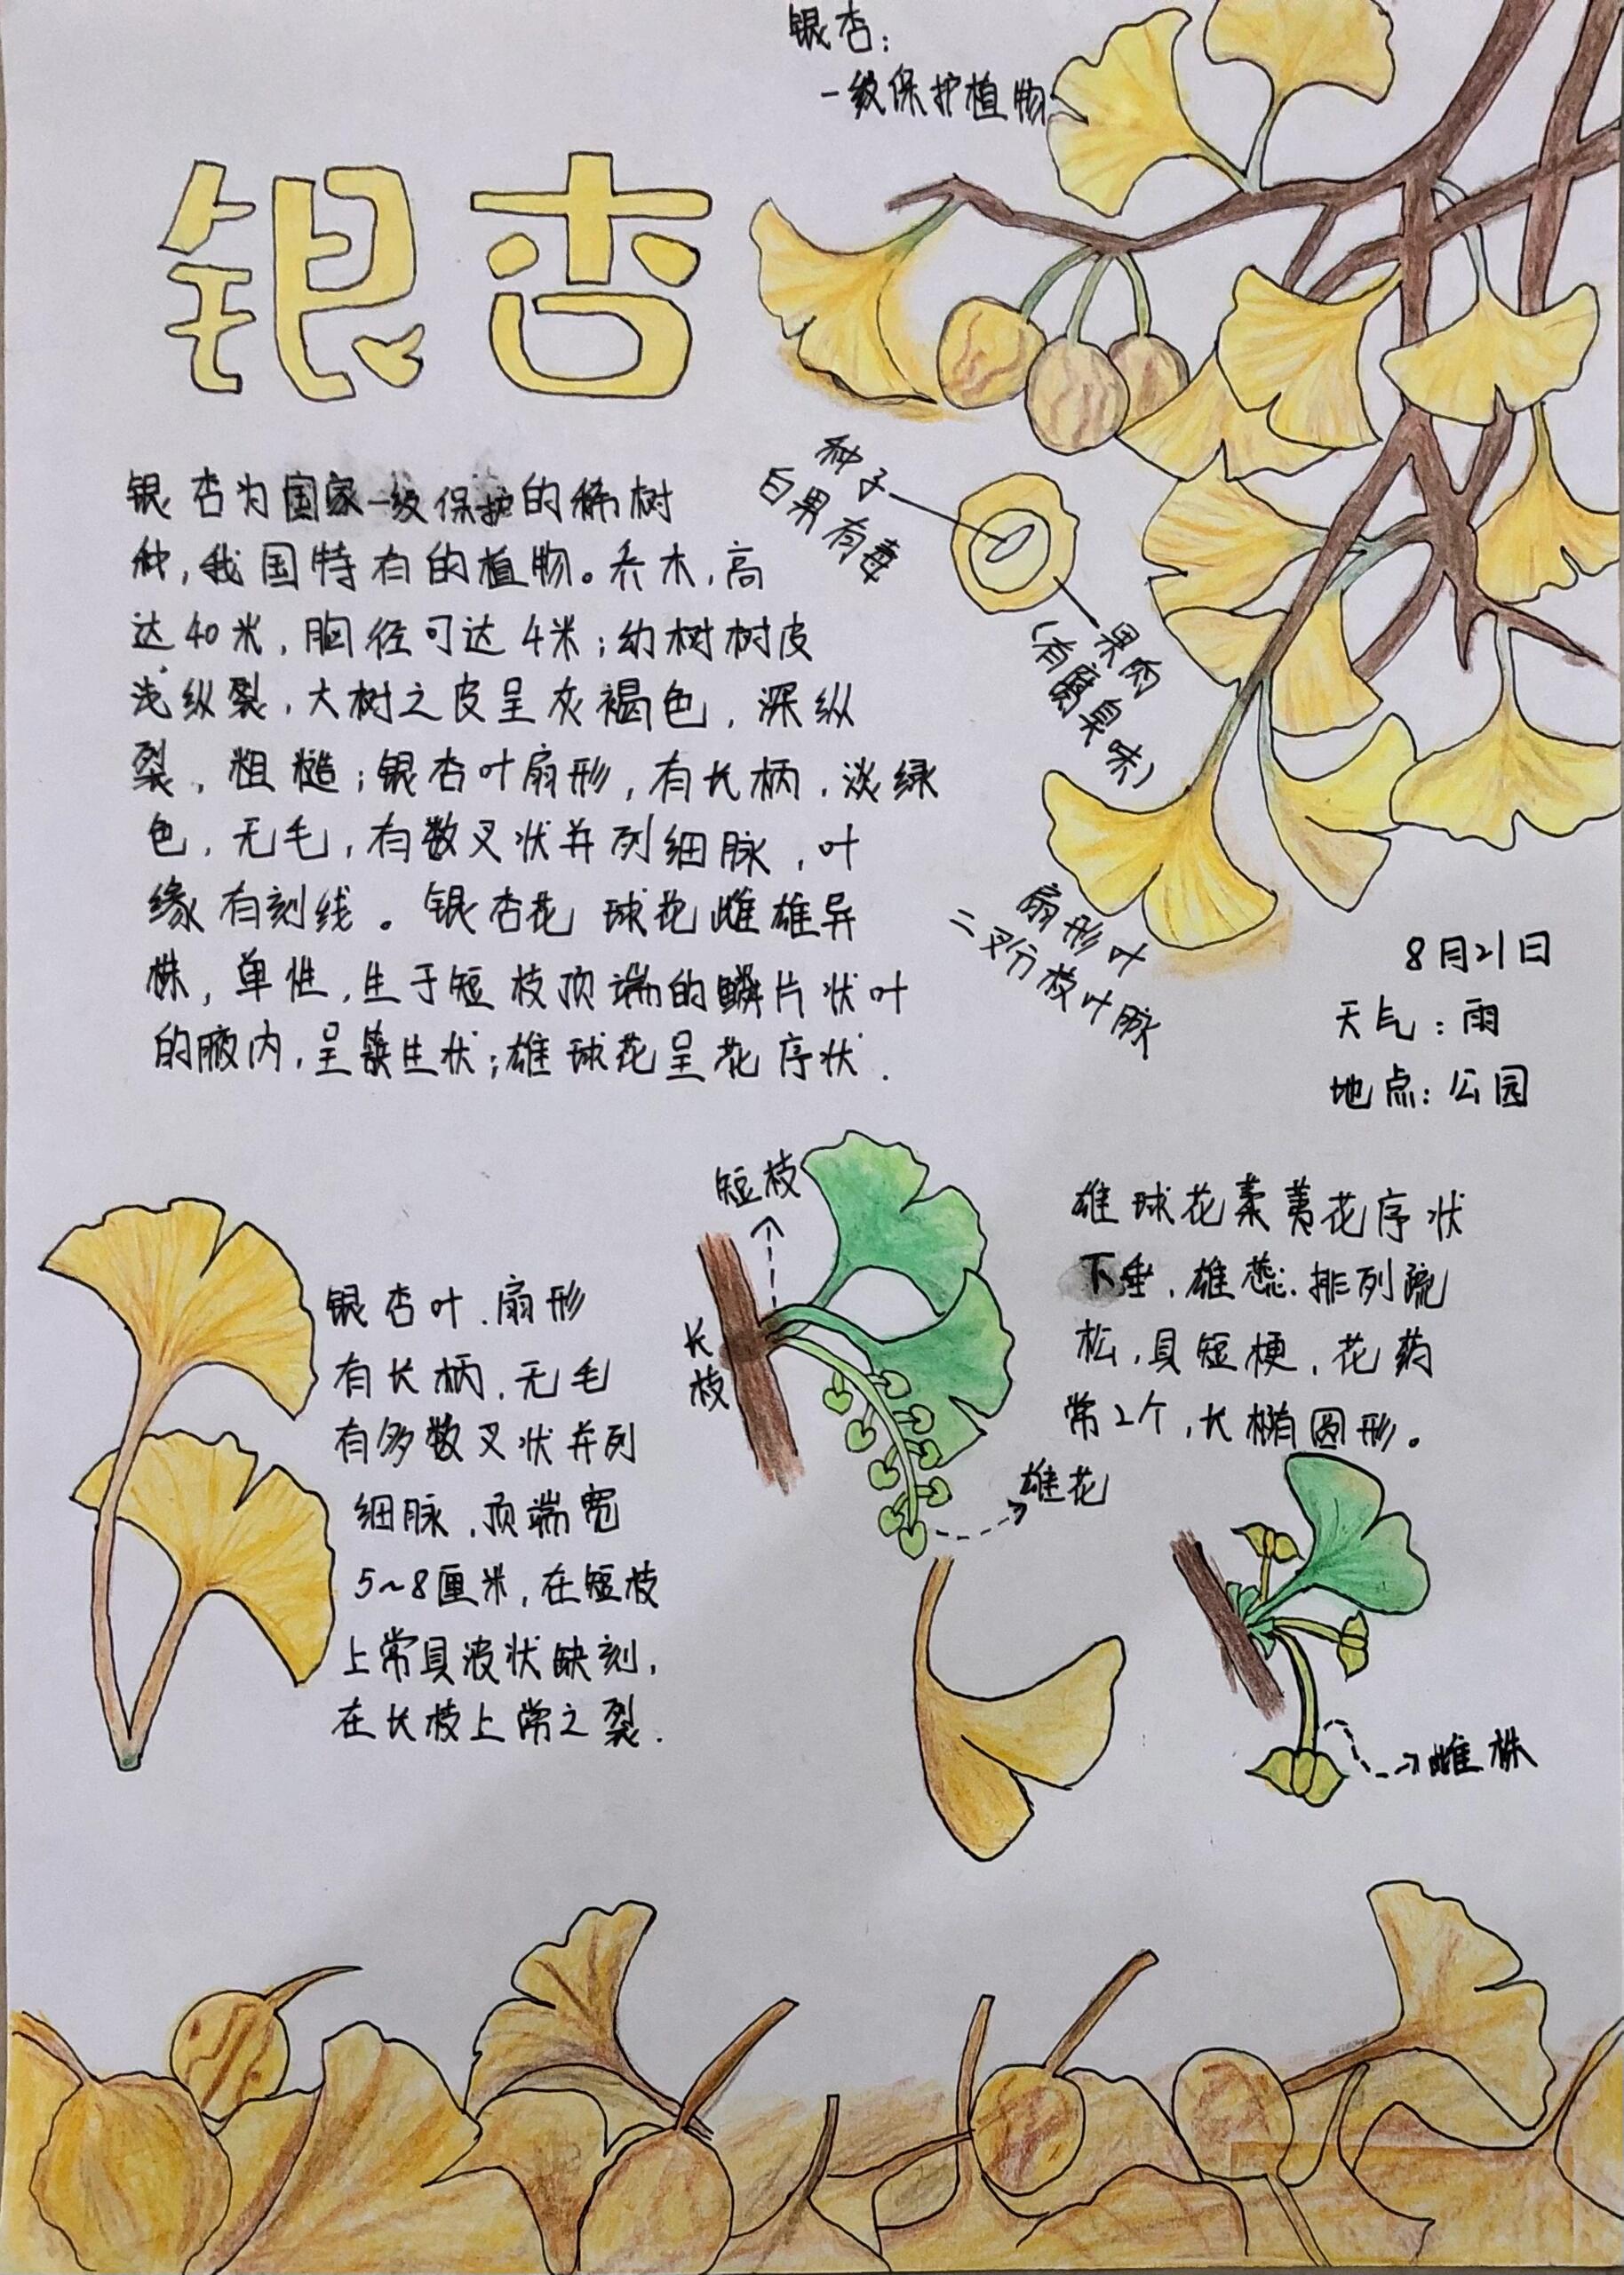 银杏：
一级保护植物
银杏
银杏为国家一级保护的稀树
种，我国特有的植物。乔木，高
达40米，胸径可达4米；幼树树皮
浅纵裂，大树之皮呈灰褐色，深纵
裂，粗糙；银杏叶扇形，有长柄，淡绿
色，无毛，有数叉状并列细脉，叶
缘有刻线。银杏花 球花雌雄异
株，单性，生于短枝顶端的鳞片状叶
的腋内，呈簇生状；雄球花呈花序状.
种子
白果有毒
果肉
（有腐臭味）
扇形叶
二叉分枝叶脉
8月21日
天气：雨
地点：公园
银杏叶.扇形
有长柄，无毛
有多数叉状并列
细脉，顶端宽
5~8厘米，在短枝
上常具波状缺刻，
在长枝上常之裂.
短枝
长枝
雄花
雄球花柔荑花序状
下垂，雄蕊.排列疏
松，具短梗，花药
常2个，长椭圆形。
雌株